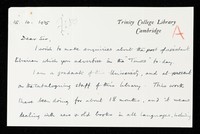 Trinity College Library
Cambridge
A
Dear Sir,
I wish to make enquiries about the post of assistant
Librarian which you advertise in the "Times" to day
I am a graduate of this University, and at present
on the cataloguing staff of this library. This work
I have been doing for about 18 months, and it means
dealing with rare & old books in all languages, including